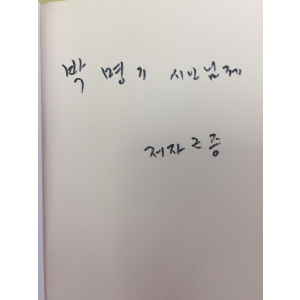 박명기 시인님께
저자 근증